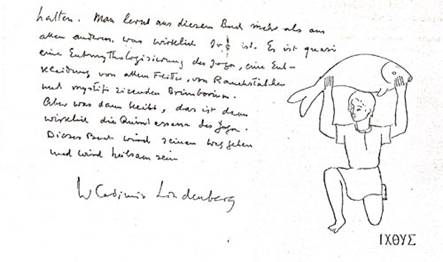 halten. Man lernt aus diesem Buch mehr als aus
allen anderen, was wirklich Yoga ist. Es ist quasi
eine Entmythologisierung des Yoga, eine Ent-
kleidung von allem, von Räucherstäbchen
und mystifizierenden Brimborium.
Aber was dann bleibt, das ist dann
wirklich die Quintessenz des Yoga.
Dieses Buch wird seinen Weg gehen
und wird heilsam sein
Wladimir Lindenberg
ΙΧΘΥΣ